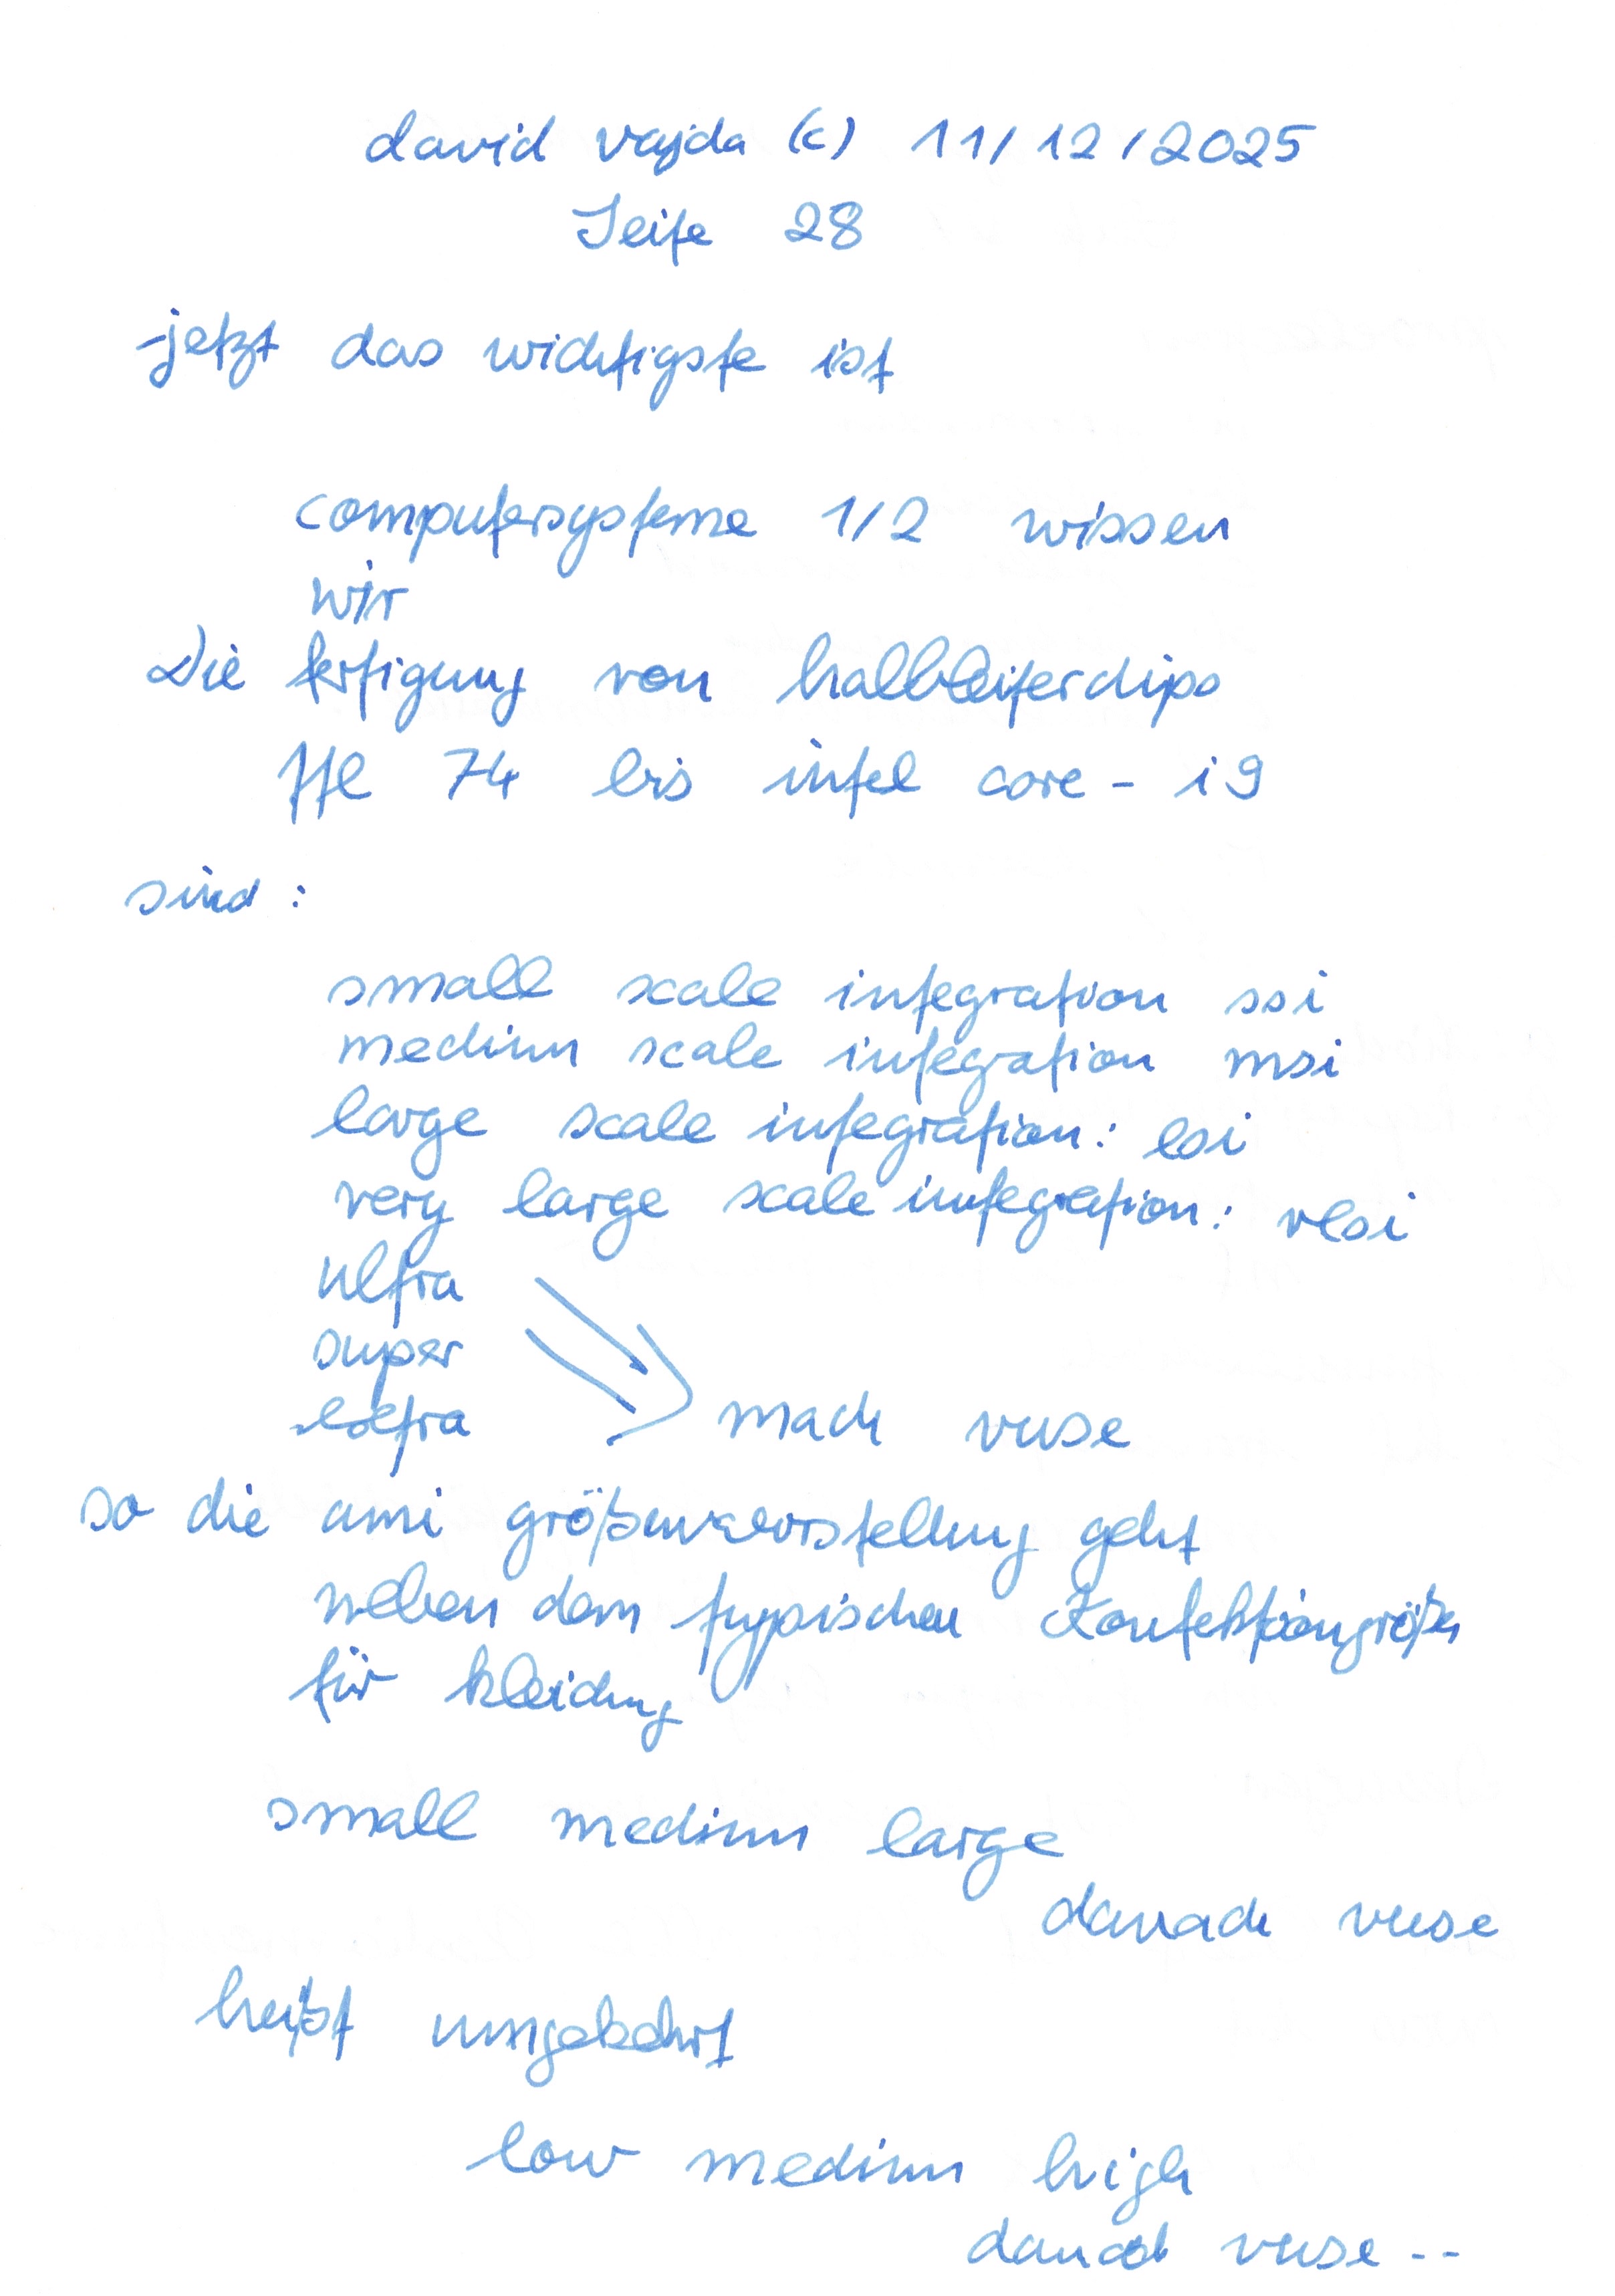 david vajda (c) 11/12/2025
Seite 28
-jetzt das wichtigste ist
computersysteme 1/2 wissen
wir
Die fertigung von halbleiterchips
ttl 74 bis intel core - i9
sind :
small scale integration ssi
medium scale integration msi
large scale integration: lsi
very large scale integration: vlsi
ultra
super
extra
mach vuse
so die ami größenvorstellung geht
neben dem typischen Konfektiongrößen
für kleidung
small medium large
danach vuse
heißt umgekehrt
low medium high
danach vuse --